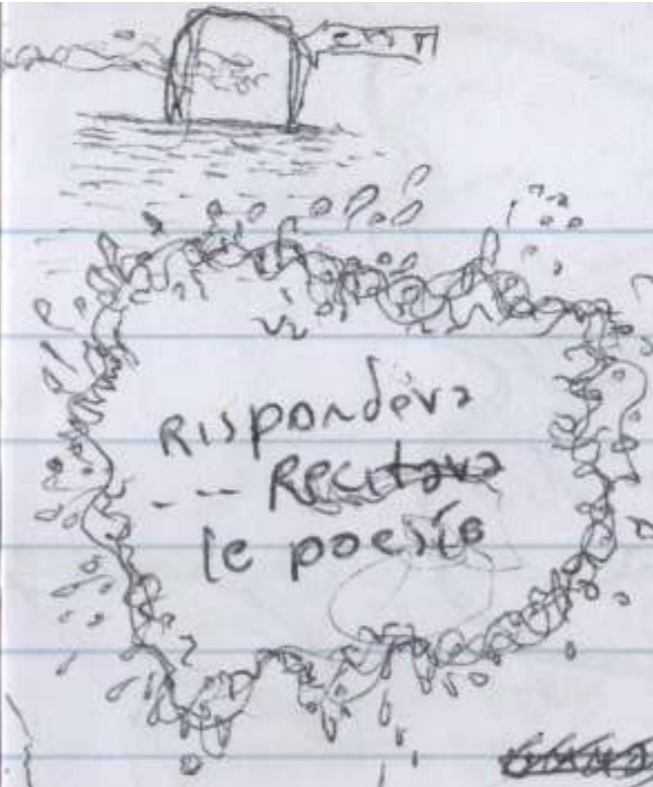 Rispondeva
--- Recitava
le poesie